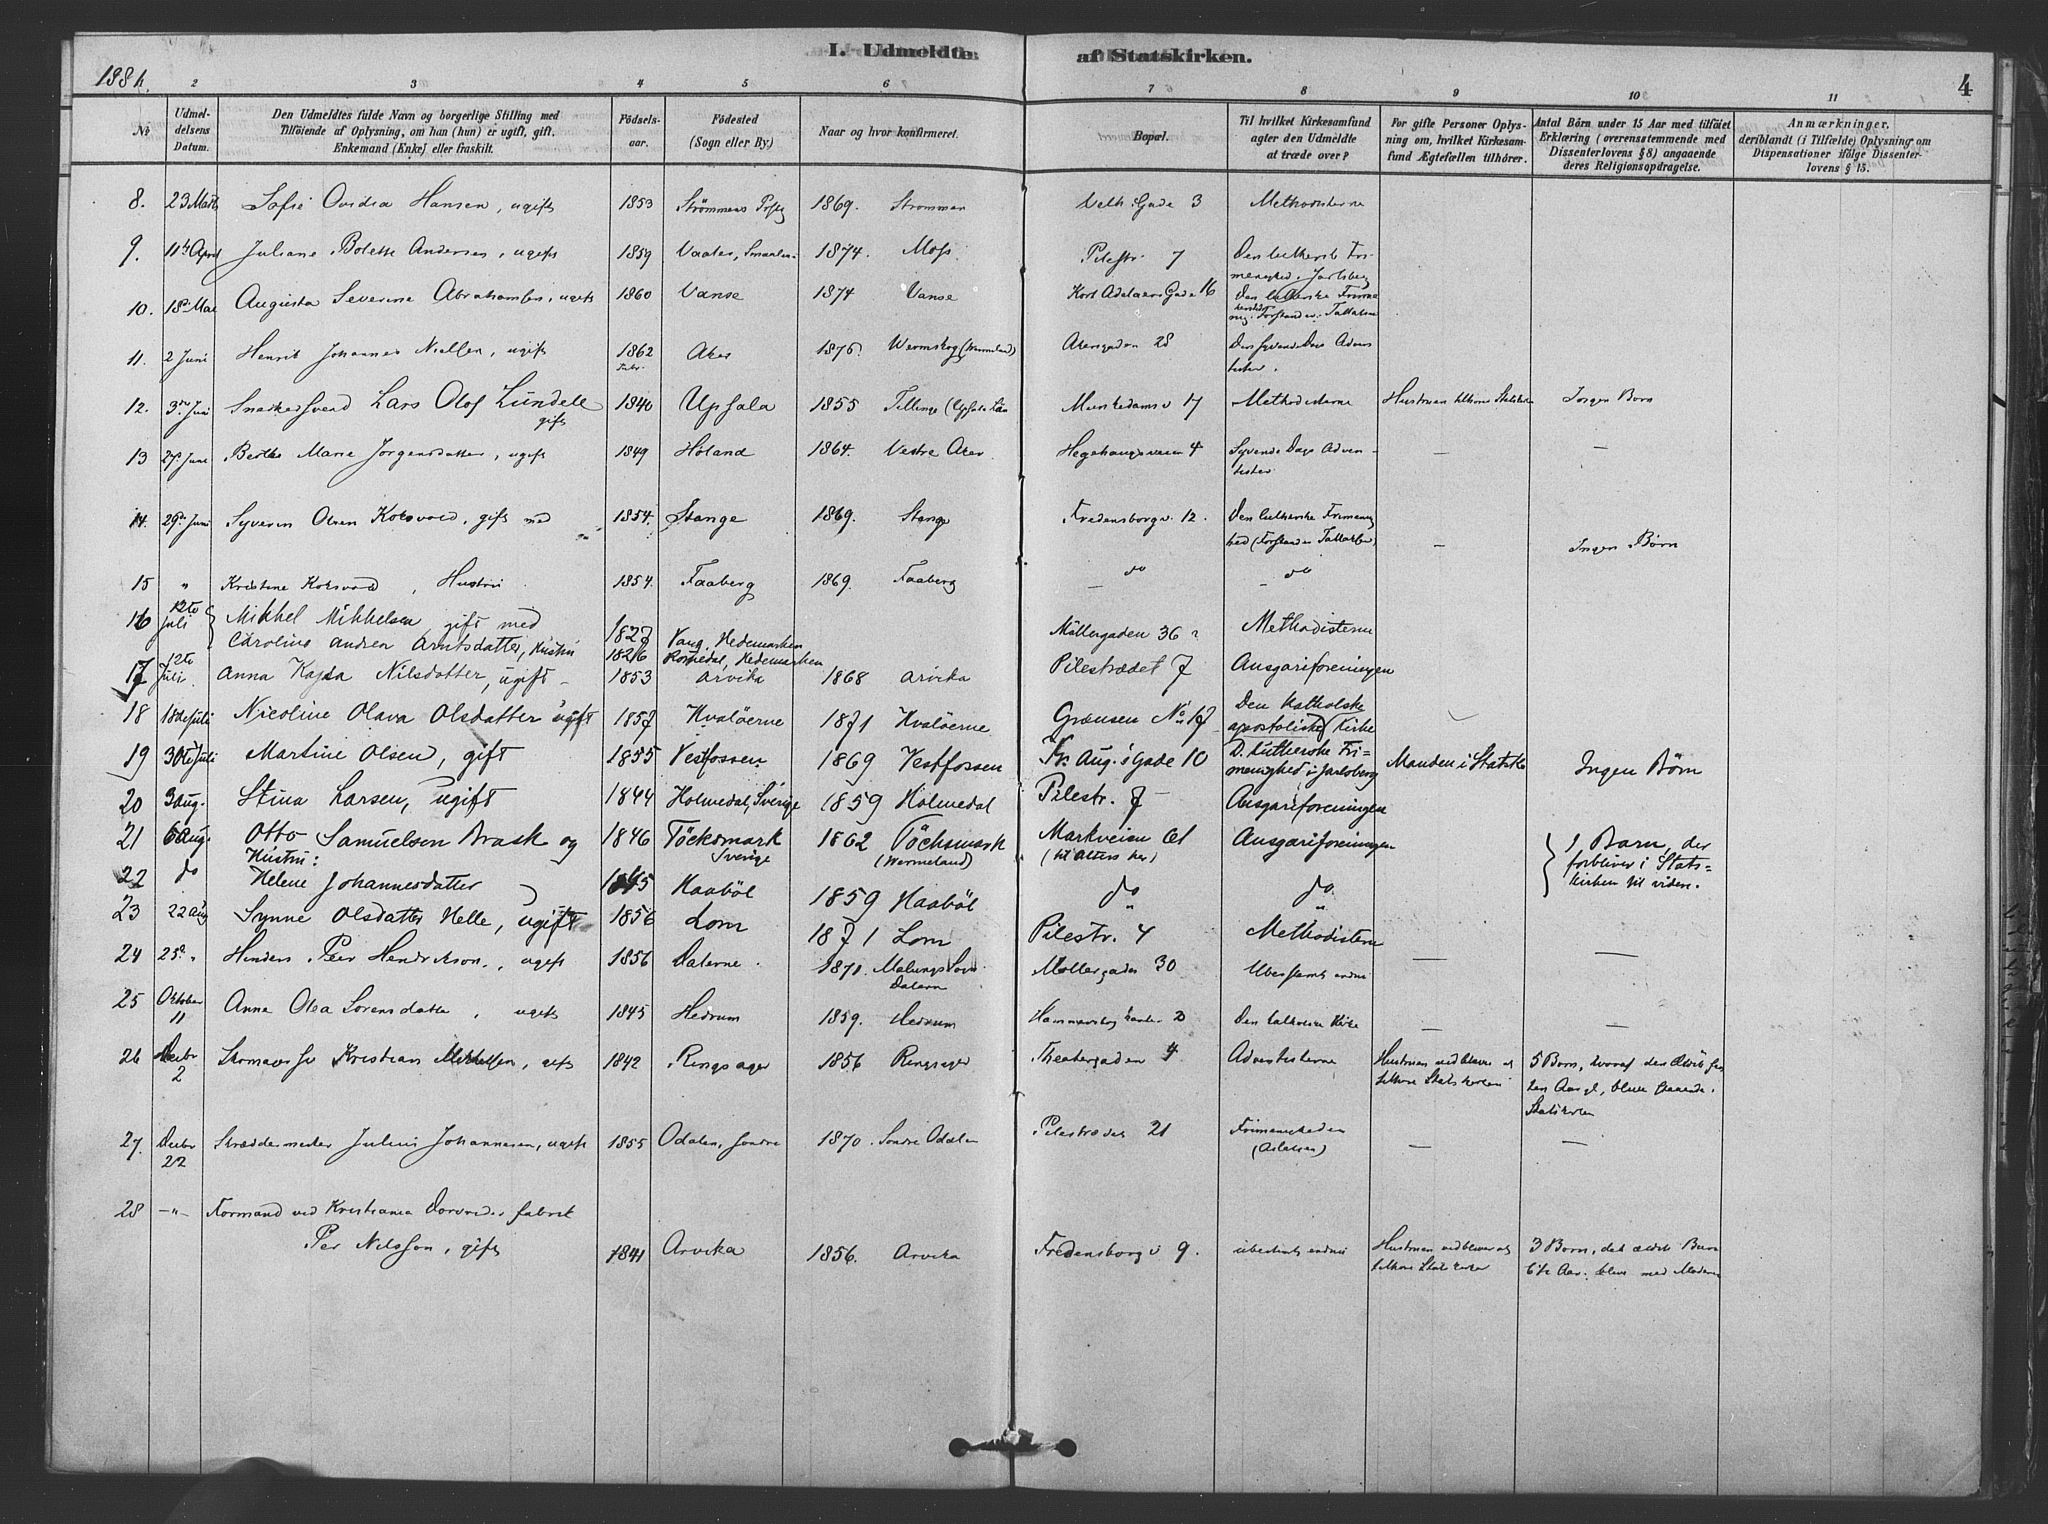 I. Udmeldte af Statskirken.
188
4
2 3 4 5 6 7 8 9 10 11
№
Udmeldelsens Datum.
Den Udmeldtes fulde Navn og borgerlige Stilling med
Tilføiende af Oplysning, om han (hun) er ugift, gift.
Enkemand (Enke) eller fraskilt.
Fødselsaar.
Fødested
(Sogn eller By.)
Naar og hvor konfirmeret.
Bopæl.
Til hvilket Kirkesamfund
agter den Udmeldte
at træde over?
For gifte Personer Oplys-
ning om, hvilket Kirkesam-
fund Ægtefællen tilhører.
Antal Børn under 15 Aar med tilføiet
Erklæring (overensstemmende med
Dissenterlovens §8) angaaende
deres Religionsopdragelse.
Anmærkninger,
deriblandt (i Tilfælde) Oplysning om
Dispensationer ifølge Dissenter-
lovens § 15.
8. 23 Marts Sofie Ovidia Hansen, ugift 1853 Strømmens 1869. Strømmen Gade 3 Methodisterne
9. 11te April Juliane Bolette Andersen, ugift 1859 Vaaler, Smaalen. 1874. Moss Pilestr. 7 Den lutherske Fri-
menighed. Jarlsberg
10. 18de Mai Augusta Severine Abrahamsen, ugift 1860 Vanse 1874 Vanse Kort Adelaers Gade 16 Den lutherske Frime
Forstander
11. 2 Juni Henrik Johannes Nielsen, ugift 1862 Aker 1876. Wermskog (Wermland) Akersgaden 28 Den syvende Dags Adven
tister.
12. 3die Juni Snedkersvend Lars Olof Lundell 1840 Upsala 1855 Tillinge (Upsala Län Munkedamsv 17 Methodisterne Hustruen tilhører Statskirken Ingen Børn
gift
13 27. Juni Berthe Marie Jørgensdatter, ugift 1849 Høland 1864. Vestre Aker Hegehaugsveien 4 Syvende Dags Adven-
tister
14. 29de Juni Syverin Olsen Koksvold, gift med 1854. Stange 1869. Stange Fredensborgv. 12. Den lutherske Frimenig
hed (Forstander Ingen Børn
15 " Kristine Koksvold, Hustru 1854. Faaberg 1869. Faaberg — do — do
16 12te Juli Mikkel Mikkelsen, gift med 1827 Vang, Hedemarken Møllergaden 36 Methodisterne
Caroline Andrea Arntsdatter, Hustru 1826 Romedal, Hedemarken
17 12te Juli Anna Kajsa Nilsdatter, ugift - 1853 Arvika 1868 Arvika Pilestrædet 7 Ansgariforeningen
18 18de Juli Nicoline Olava Olsdatter ugift 1857 Hvaløerne 1871 Hvaløerne Grænsen No 17 Den Katholske
apostoliske Kirke
19 30te Juli Martine Olsen, gift 1855 Vestfossen 1869 Vestfossen Kr. Aug.'s Gade 10 D. lutherske Fri-
menighed i Jarlsberg Manden i Statsk. Ingen Børn
20 3 Aug. Stina Larsen, ugift 1844 Holmedal, Sverige 1859 Holmedal Pilestr. 7 - Ansgariforeningen
21 6 Aug. Otto Samuelsen Brask og 1846 Töcksmark 1862 Töcksmark Markveien 61 Ansgariforeningen 1 Barn, der
Hustru: Sverige (Wermeland) forbliver i Stats-
22 do Helene Johannesdatter 1845 Haaböl 1859 Haaböl do do kirken til videre.
23 22 Aug Synne Olsdatter Helle, ugift 1856 Lom 1871 Lom Pilestr. 4 Methodisterne
24 25de " Hinders Peer Hendrikson, ugift 1856 Dalerne. 1871. Malungs Sogn Møllergaden 30 Ubestemt endnu — —
Dalern
25 Oktober 11 Anna Olea Sørensdatter, ugift 1845 Hedrum 1859. Hedrum Hammersborg 2 Den katholske Kirke — —
26 Decbr 2 Skomagersv Kristian Mikkelsen, gift 1842 Ringsager 1856 Ringsager Theatergaden 4 Adventisterne Hustruen vedbliver at
tilhøre Statskirken 5 Børn, hvoraf den ældste
ten Aar gl., bliver
Statskirken
27. Decbr 22 Skræddermester Julius Johannesen, ugift 1855 Odalen, søndre 1870. Søndre Odalen Pilestrædet 21 Frimenigheden — —
(Aslaksen)
28 —"— Formand ved Kristiania fabrik
Per Nilsson, gift 1841 Arvika 1856. Arvika Fredensborgv 9. ubestemt endnu Hustruen vedbliver at
tilhøre Statskirken 3 Børn, det ældste Barn
6½ Aar. blive med Moderen